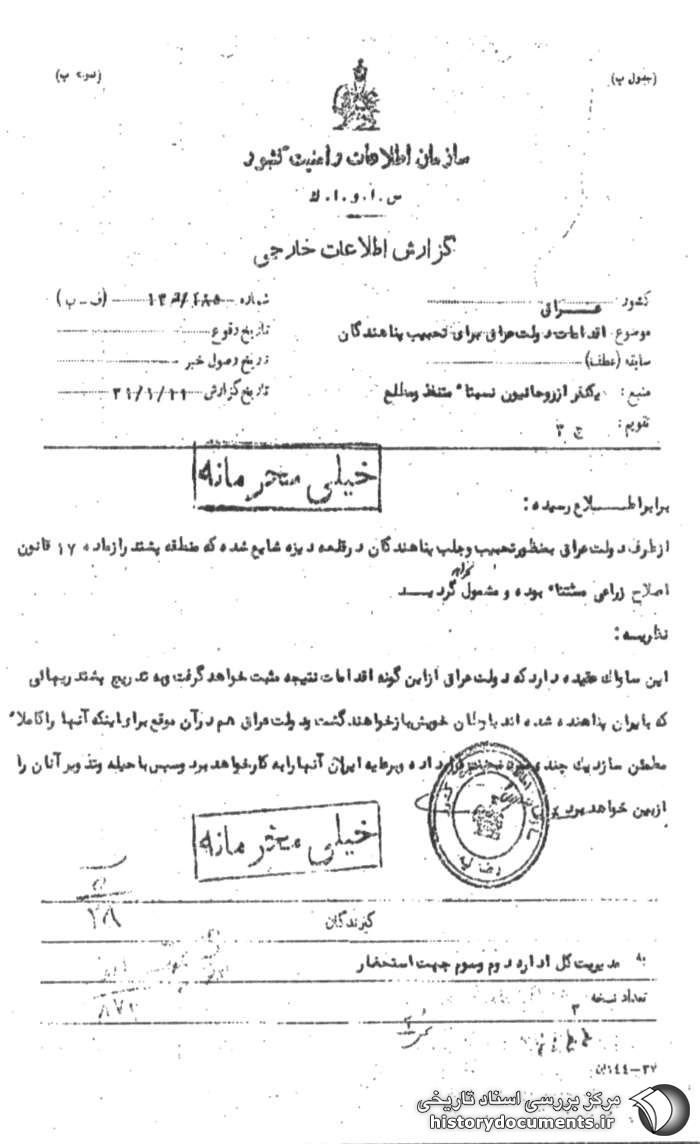 (جدول پ)
(نمونه ب)
سازمان اطلاعات و امنیت کشور
س . ا . و . ا . ك
گزارش اطلاعات خارجی
کشور عـــراق
شماره (ف ـ ب)
موضوع: اقدامات دولت عراق برای تحبیب پناهندگان
تاریخ وقوع
سابقه (عطف)
تاریخ وصول خبر
منبع: یکنفر از روحانیون نسبتا" متنفذ و مطلع
تاریخ گزارش
تقویم: ج ۳
خیلی محرمانه
برابر اطـــلاع رسیده:
از طرف دولت عراق بمنظور تحبیب و جلب پناهندگان در قلعه دیزه شایع شده که منطقه پشدر از ماده ۱۷ قانون
اصلاح زراعی مستثنا" بوده و مشمول نخواهد گردیـــد
نظریـه:
این ساواك عقیده دارد که دولت عراق از این گونه اقدامات نتیجه مثبت خواهد گرفت و به تدریج پشدریهائی
که بایران پناهنده شده اند باوطان خویش باز خواهند گشت و دولت عراق هم در آن موقع برای اینکه آنها را کاملا"
مطمئن سازد یك چندی داده و برعلیه ایران آنها را به کار خواهد برد و سپس با حیله و تذویر آنان را
از بین خواهد برد
خیلی محرمانه
رضائیه
۲۸
گیرندگان
به مدیریت کل اداره دوم و سوم جهت استحضار
۸۷۲
تعداد نسخه ۳
۲۷ــ۱۴۴
مرکز بررسی اسناد تاریخی
historydocuments.ir